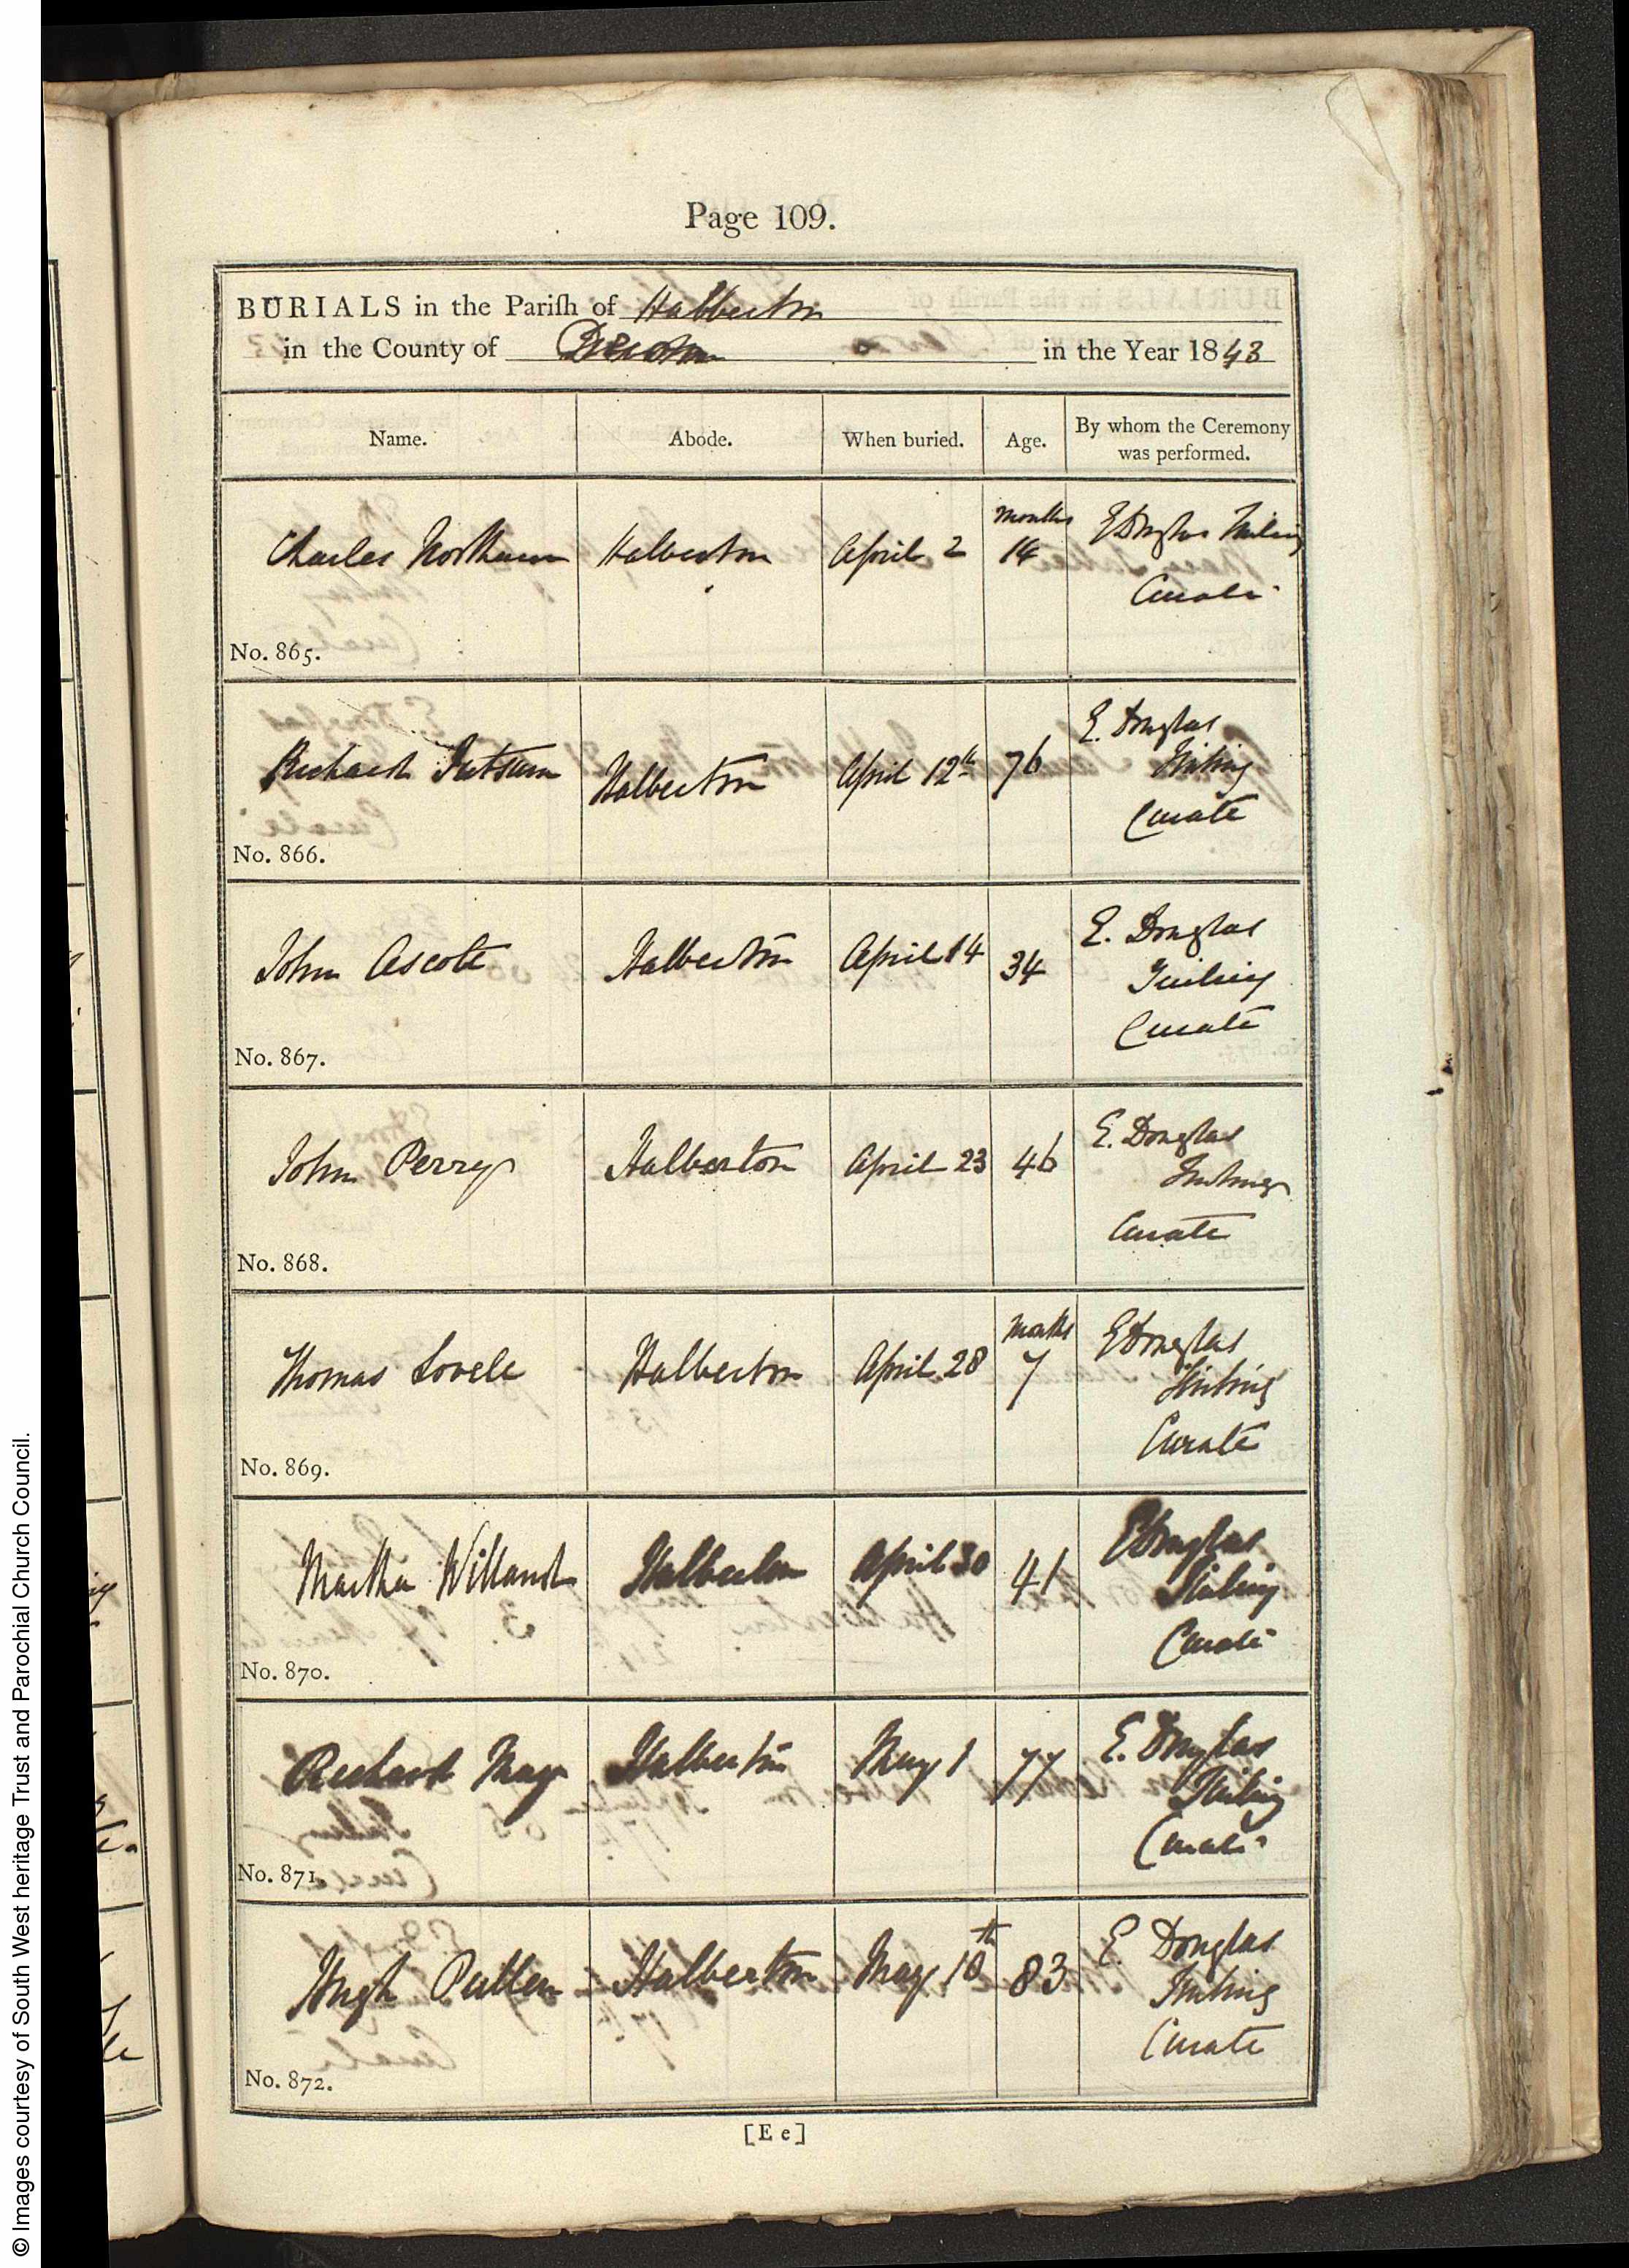 Page 109.
BURIALS in the Parish of Halberton
in the County of Devon in the Year 1843
Name. Abode. When buried. Age. By whom the Ceremony was performed.
Charles Northam Halberton April 2 months 14 E Douglas
Curate
No. 865.
Richard Halberton April 12th 76 E. Douglas
Curate
No. 866.
John Ascott Halberton April 14 34 E. Douglas
Curate
No. 867.
John Perry Halberton April 23 46 E. Douglas
Curate
No. 868.
Thomas Lovell Halberton April 28 months 7 E Douglas
Curate
No. 869.
Martha Willand Halberton April 30 41 E Douglas
Curate
No. 870.
Richard May Halberton May 1 77 E. Douglas
Curate
No. 871.
Hugh Pullen Halberton May 10th 83 E. Douglas
Curate
No. 872.
[E e]
© Images courtesy of South West heritage Trust and Parochial Church Council.